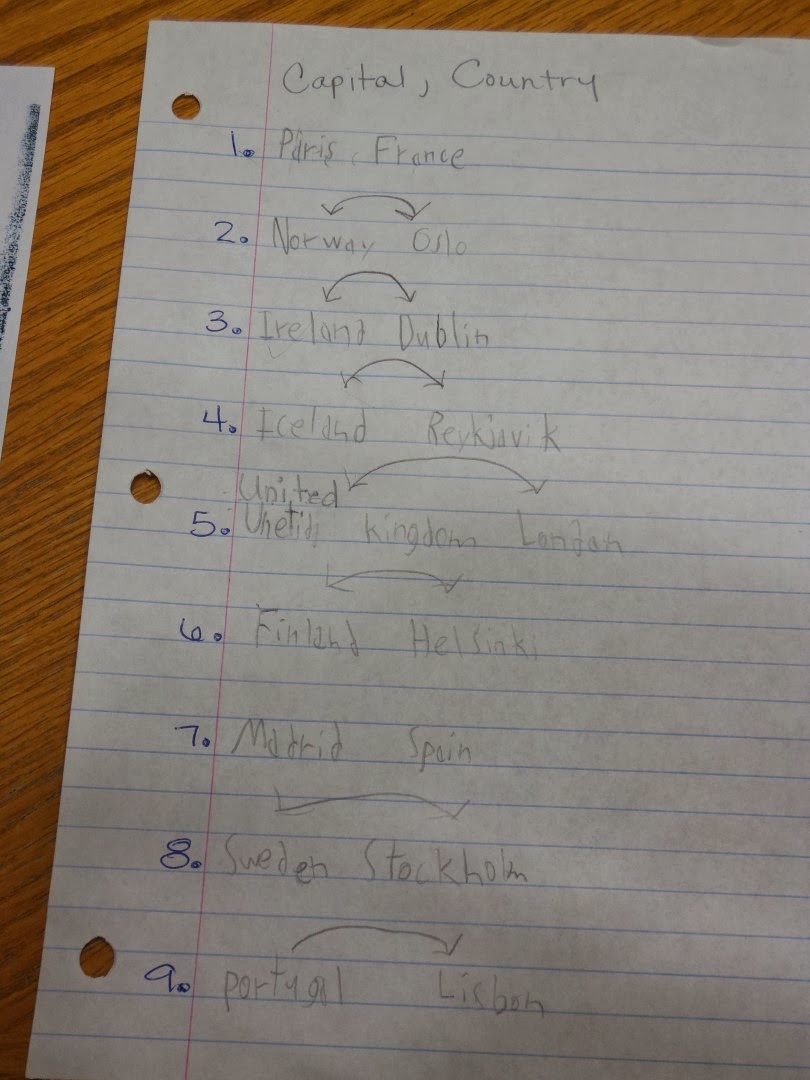 Capital, Country
1. Paris, France
2. Norway Oslo
3. Ireland Dublin
4. Iceland Reykjavik
United
5. Kingdom London
6. Finland Helsinki
7. Madrid Spain
8. Sweden Stockholm
9. Portugal Lisbon